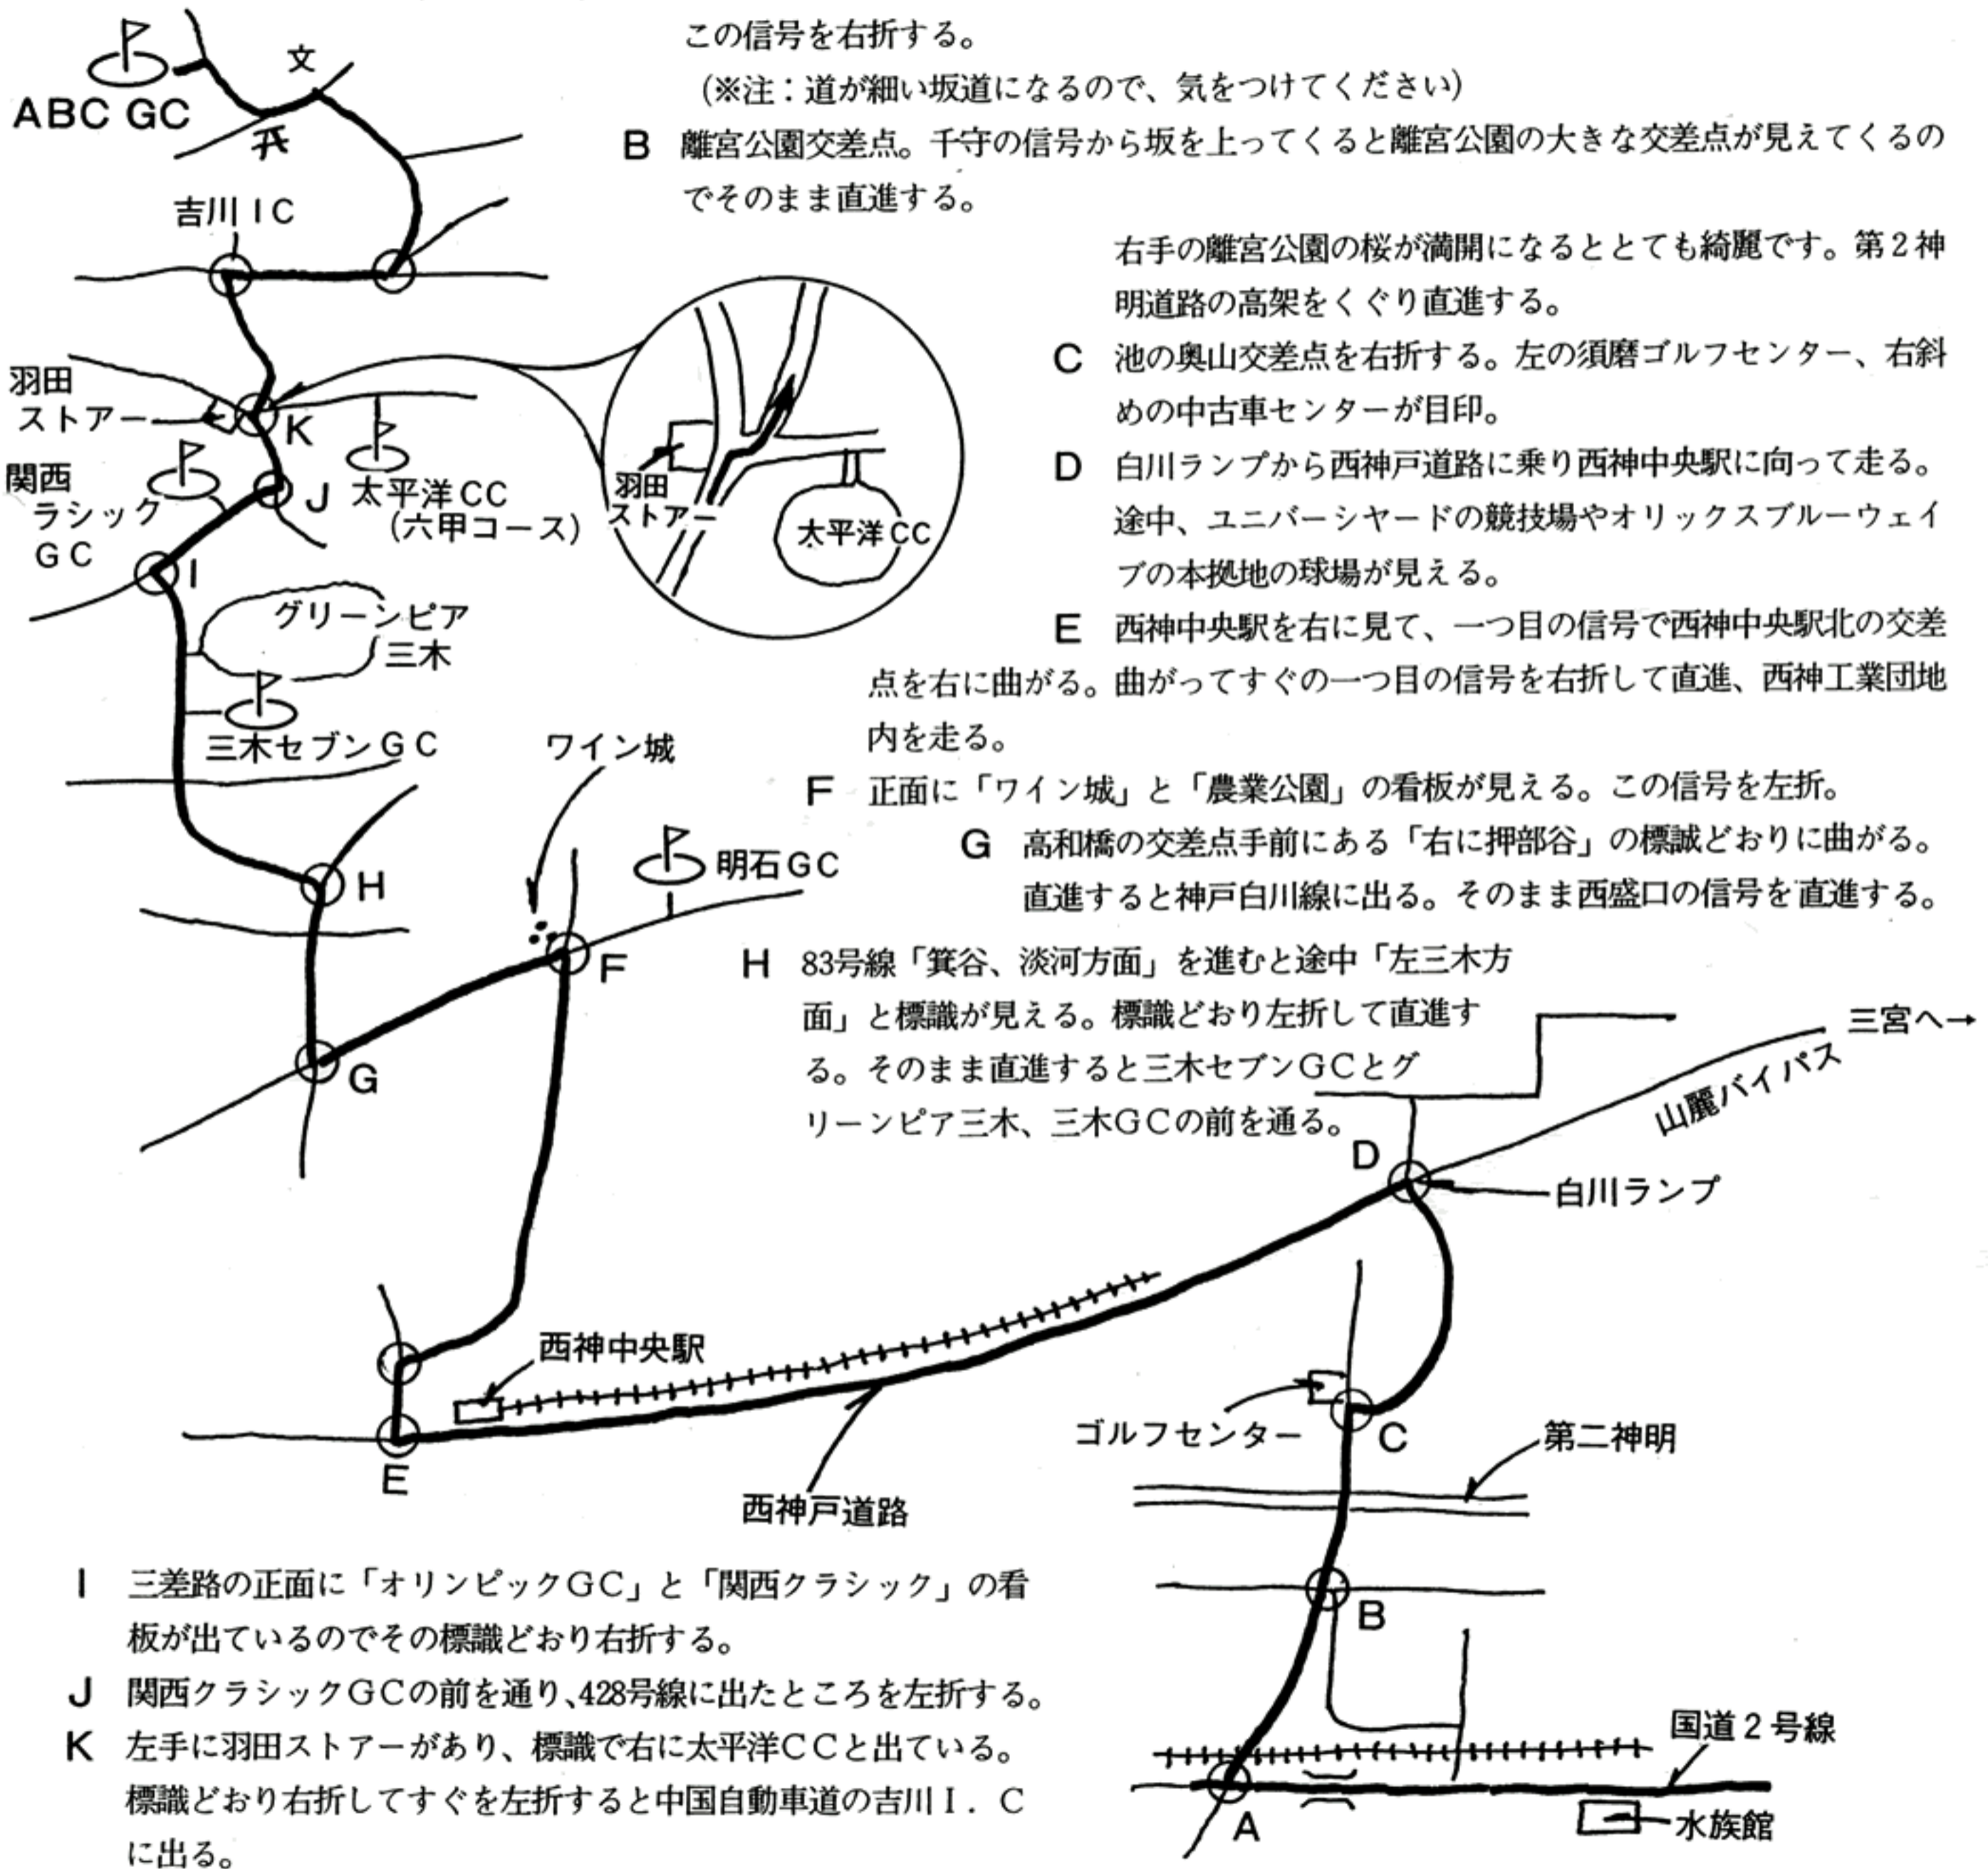 この信号を右折する。
(※注：道が細い坂道になるので、気をつけてください)
B 離宮公園交差点。千守の信号から坂を上ってくると離宮公園の大きな交差点が見えてくるの
でそのまま直進する。
右手の離宮公園の桜が満開になるととても綺麗です。第２神
明道路の高架をくぐり直進する。
C 池の奥山交差点を右折する。左の須磨ゴルフセンター、右斜
めの中古車センターが目印。
D 白川ランプから西神戸道路に乗り西神中央駅に向って走る。
途中、ユニバーシヤードの競技場やオリックスブルーウェイ
ブの本拠地の球場が見える。
E 西神中央駅を右に見て、一つ目の信号で西神中央駅北の交差
点を右に曲がる。曲がってすぐの一つ目の信号を右折して直進、西神工業団地
内を走る。
F 正面に「ワイン城」と「農業公園」の看板が見える。この信号を左折。
G 高和橋の交差点手前にある「右に押部谷」の標誠どおりに曲がる。
直進すると神戸白川線に出る。そのまま西盛口の信号を直進する。
H 83号線「箕谷、淡河方面」を進むと途中「左三木方
面」と標識が見える。標識どおり左折して直進す
る。そのまま直進すると三木セブンＧＣとグ
リーンピア三木、三木ＧＣの前を通る。
I 三差路の正面に「オリンピックＧＣ」と「関西クラシック」の看
板が出ているのでその標識どおり右折する。
J 関西クラシックＧＣの前を通り、428号線に出たところを左折する。
K 左手に羽田ストアーがあり、標識で右に太平洋ＣＣと出ている。
標識どおり右折してすぐを左折すると中国自動車道の吉川Ｉ．Ｃ
に出る。
ABC GC
文
吉川ＩＣ
羽田
ストアー
K
関西
ラシック
ＧＣ
J
太平洋ＣＣ
(六甲コース)
羽田
ストアー
太平洋ＣＣ
I
グリーンピア
三木
三木セブンＧＣ
ワイン城
明石ＧＣ
H
F
G
三宮へ→
山麓バイパス
D
白川ランプ
西神中央駅
E
西神戸道路
ゴルフセンター
C
第二神明
B
国道２号線
A
水族館